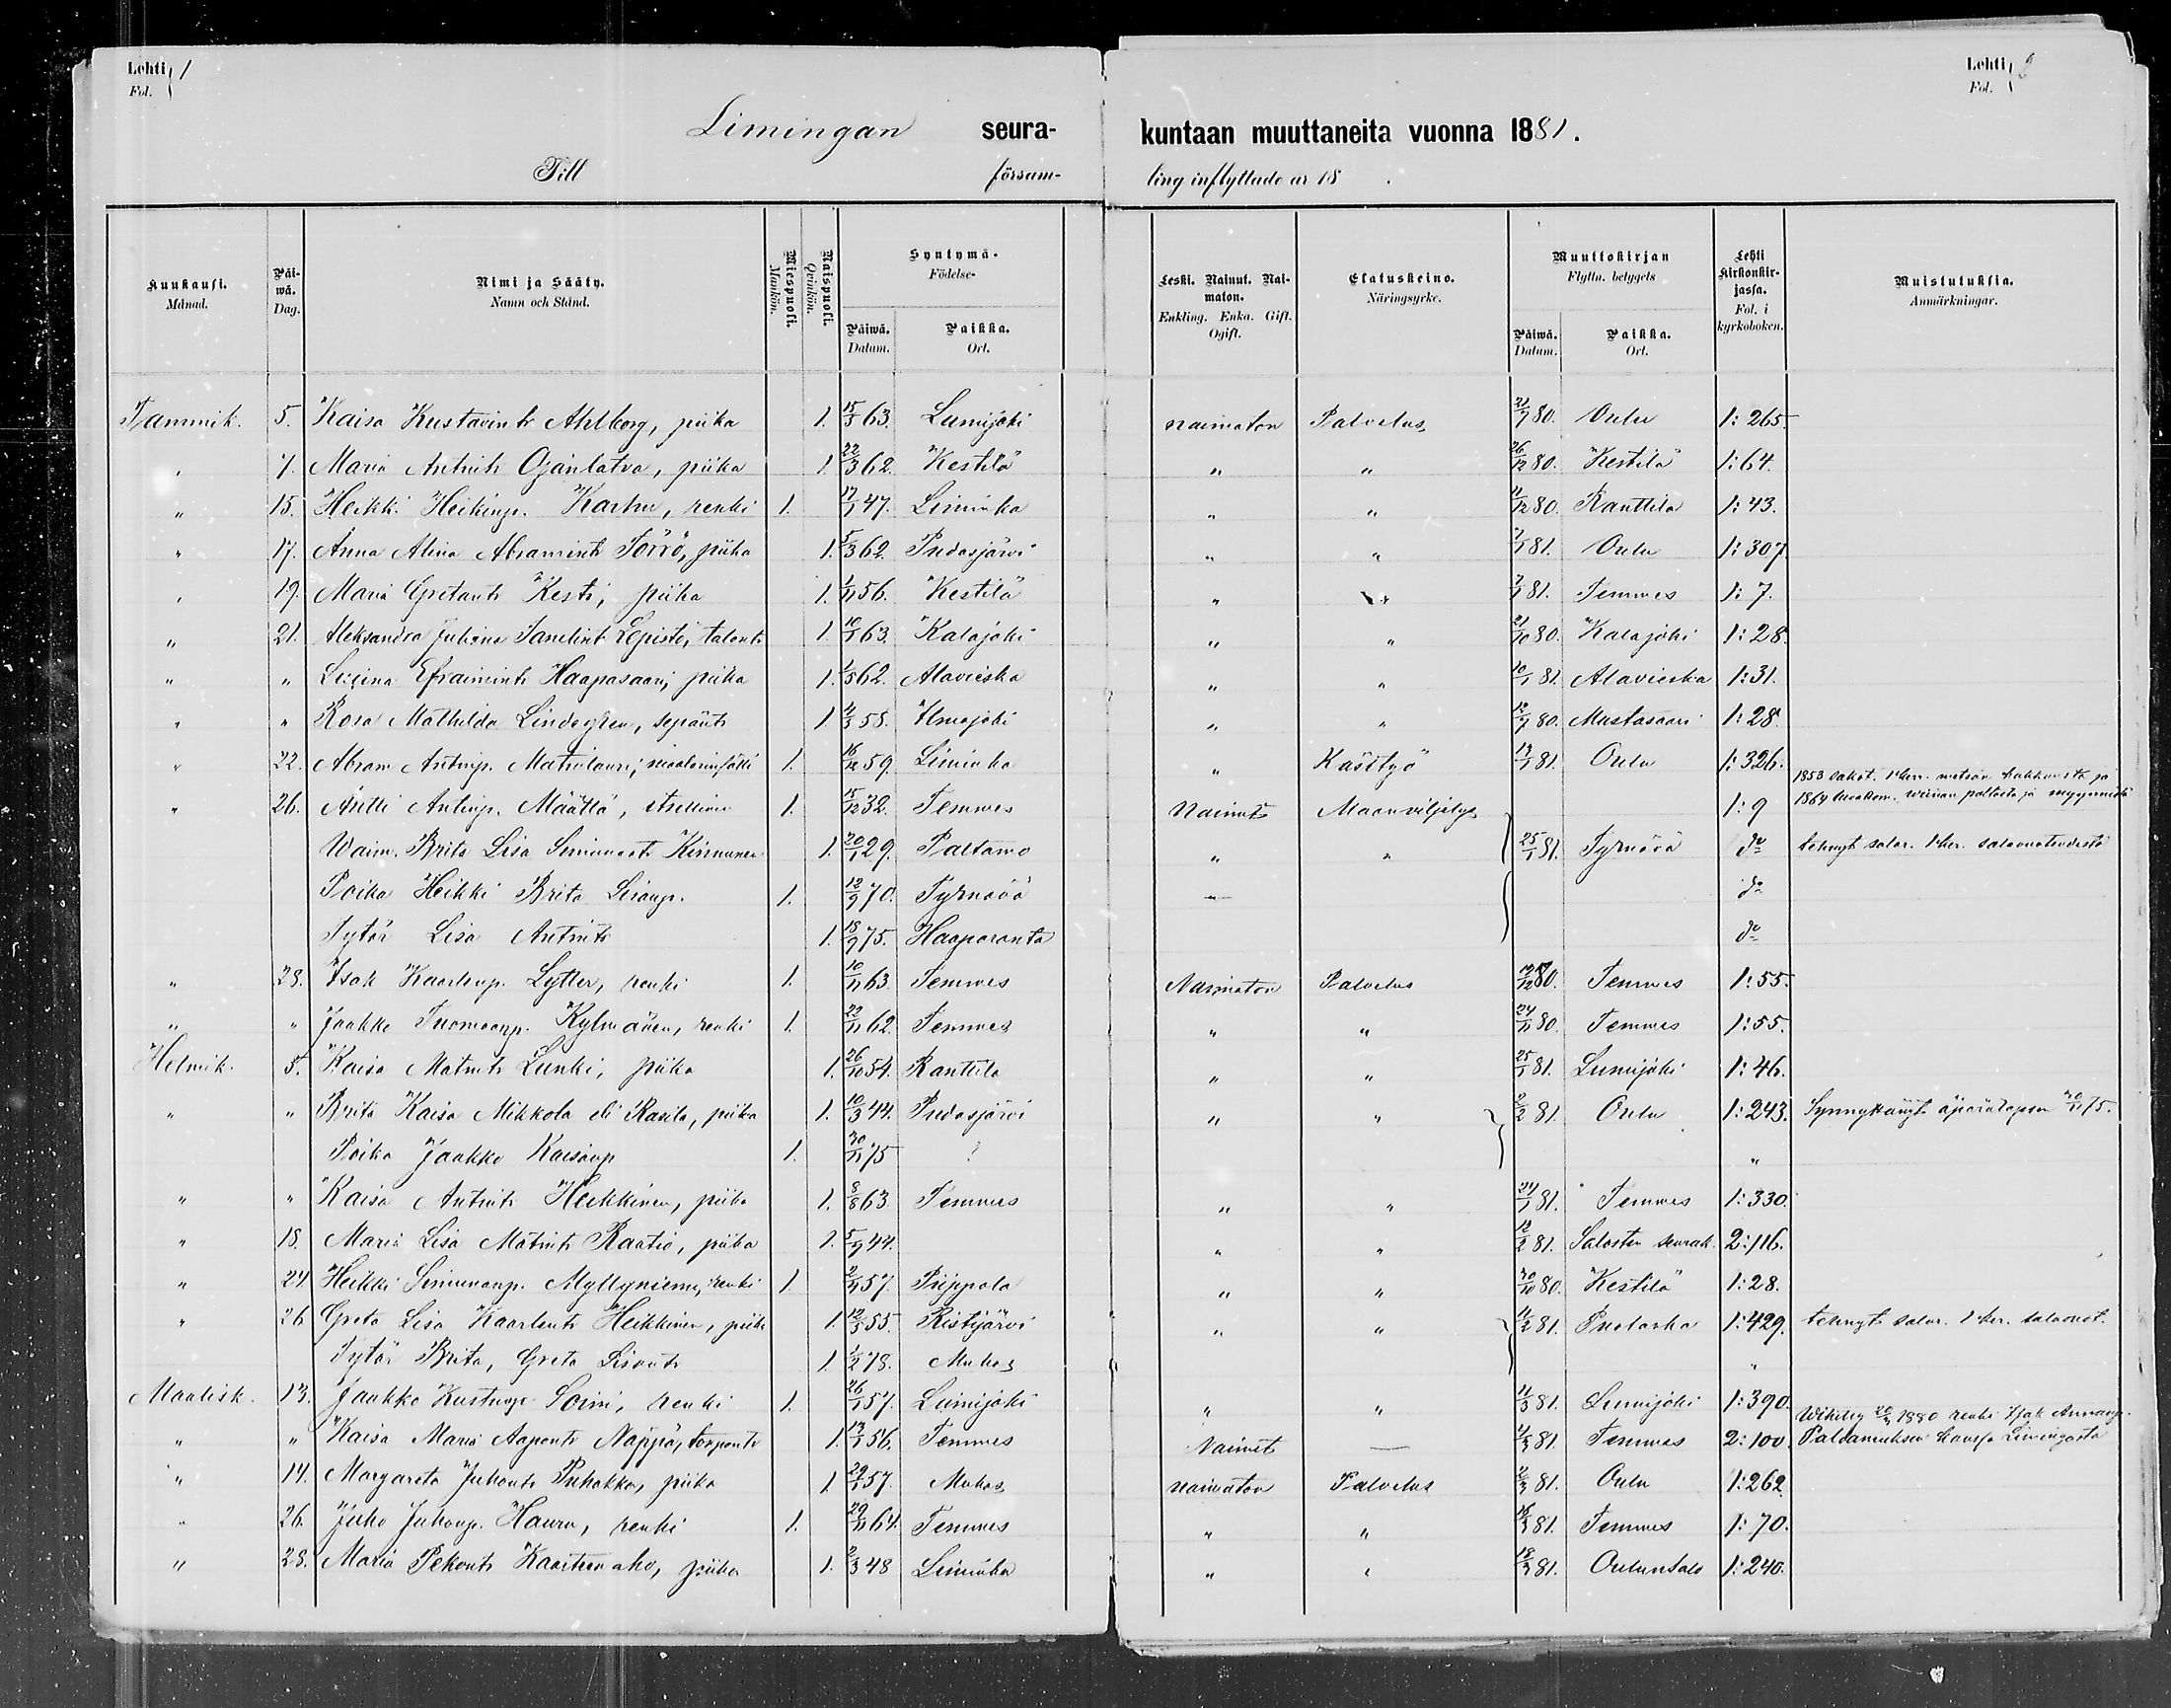 Lehti 1 Lehti 2
Fol. Fol.
Limingan seura- kuntaan muuttaneita vuonna 1881.
Till försam- ling inflyttade år 18 .
Kuukausi. Päi-wä. Nimi ja Sääty. Miespuoli. Naispuoli. Syntymä. Leski. Nainut. Nai-maton. Elatuskeino. Muuttokirjan Lehti Kirkonkir-jassa. Muistutuksia.
Månad. Dag. Namn och Stånd. Mankön. Qvinkön. Födelse- Enkling. Enka. Gift. Ogift. Näringsyrke. Flyttn. betygets Fol. i kyrkoboken. Anmärkningar.
Päiwä. Paikka. Päiwä. Paikka.
Datum. Ort. Datum. Ort.
Tammik. 5. Kaisa Kustavintr Ahlborg, piika 1. 15/3 63. Lumijoki naimaton Palvelus 21/7 80. Oulu 1:265.
" 7. Maria Antintr Ojanlatva, piika 1. 22/3 62. Kestilä " " 26/12 80. Kestilä 1:64.
" 15. Heikki Heikinp. Karhu, renki 1. 17/1 47. Liminka " " 11/12 80. Ranttila 1:43.
" 17. Anna Alina Abramintr Törrö, piika 1. 5/3 62. Pudasjärvi " " 7/1 81. Oulu 1:307
" 19. Maria Gretantr Kesti, piika 1. 1/11 56. Kestilä " " 7/1 81. Temmes 1:7.
" 21. Aleksandra Juhana Lepistö, talontr 1. 10/1 63. Kalajoki " " 21/10 80. Kalajoki 1:28.
" " Efraimintr Haapasaari, piika 1. 1/5 62. Alavieska " " 10/1 81. Alavieska 1:31.
" " Rosa Mathilda Lindegren, sepäntr 1. 4/3 58. Ilmajoki " " 12/7 80. Mustasaari 1:28.
" 22. Abram Antinp. Matinlauri, 1. 16/12 59. Liminka " Käsityö 13/1 81. Oulu 1:326.
1853 sakot. 1 ker. metsän hakkausta ja
" 26. Antti Antinp. Määttä, itsellinen 1. 15/12 32. Temmes Nainut Maanviljelys 1:9 1864 viinan poltosta ja myynnistä
Waim. Brita Lisa Simuntr Kinnunen 1. 20/1 29. Paltamo " " 25/1 81. Tyrnävä do tehnyt salav. 1 ker. salavuoteudesta
Poika Heikki Brita Lisanp. 1. 12/9 70. Tyrnävä — do
Tytär Lisa Antintr 1. 18/9 75. Haaparanta do
" 28. Isak Kaarlenp. Lytter, renki 1. 10/11 63. Temmes Naimaton Palvelus 80. Temmes 1:55.
" " Jaakko Tuomaanp. Kylmänen, renki 1. 22/11 62. Temmes " " 24/11 80. Temmes 1:55.
Helmik. 5. Kaisa Matintr Lunki, piika 1. 26/10 54. Ranttila " " 25/1 81. Lumijoki 1:46.
" " Brita Kaisa Mikkola eli Rasila, piika 1. 10/3 44. Pudasjärvi " " 2/2 81. Oulu 1:243. Synnyttänyt äpärälapsen 30/11 75.
Poika Jaakko Kaisanp 1. 30/11 75 ? "
" " Kaisa Antintr Heikkinen, piika 1. 8/8 63 Temmes " " 24/1 81. Temmes 1:330.
" 18. Maria Lisa Matintr Raatio, piika 1. 5/9 44. " " 12/2 81. Saloisten seurak. 2:116.
" 24 Heikki Simunanp. Myllyniemi, renki 1. 2/11 57. Piippola " " 30/10 80. Kestilä 1:28.
" 26 Greta Lisa Kaarlentr Heikkinen, piika 1. 12/5 55. Ristijärvi " " 11/2 81. Puolanka 1:429. tehnyt salav. 1 ker. salavuot.
Tytär Brita, Greta Lisantr 1. 1/2 78. Muhos "
Maalisk. 13. Jaakko Kustinp. Soini, renki 1. 26/1 57. Lumijoki " " 11/3 81. Lumijoki 1:390.
Wihitty 1880 renki Isak Annanp.
" " Kaisa Maria Aapontr Näppä, torpantr 1. 13/1 56. Temmes Nainut — 4/3 81. Temmes 2:100. Paldaniuksen kanssa Limingasta
" 14. Margareta Juhontr Puhakka, piika 1. 29/1 57. Muhos naimaton Palvelus 2/3 81. Oulu 1:262.
" 26. Juho Juhonp. Hauru, renki 1. 29/11 64. Temmes " " 16/3 81. Temmes 1:70.
" 28. Maria Pekantr Kaartinaho, piika 1. 2/3 48 Liminka " " 18/3 81. Oulunsalo 1:240.